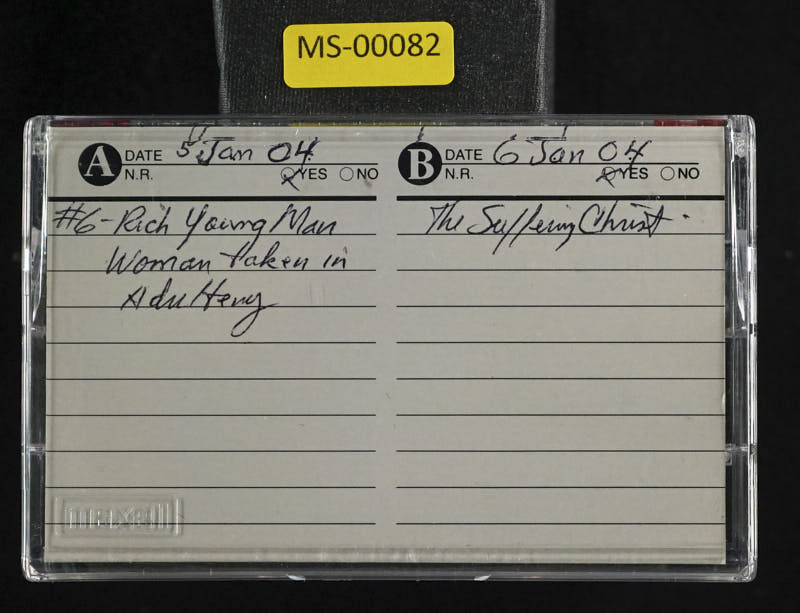 MS-00082
A DATE 5 Jan 04
N.R. YES NO
#6-Rich Young Man
Woman taken in
Adultery
B DATE 6 Jan 04
N.R. YES NO
The Suffering Christ.
maxell